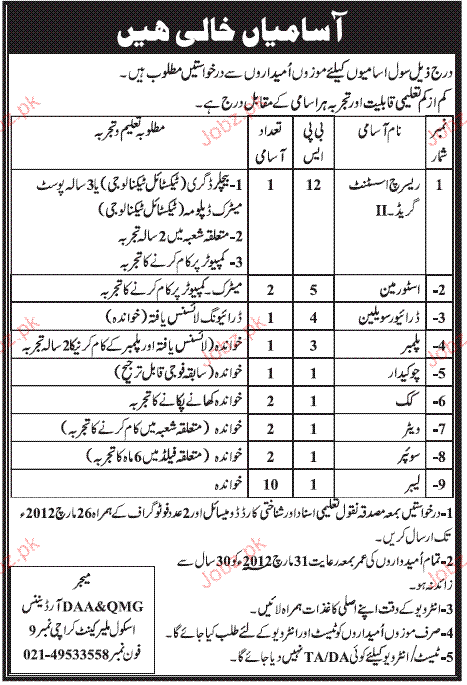 آسامیاں خالی ہیں
درج ذیل سول اسامیوں کیلئے موزوں اُمیداروں سے درخواستیں مطلوب ہیں۔
کم از کم تعلیمی قابلیت اور تجربہ ہر اسامی کے مقابل درج ہے۔
نمبر شمار نام آسامی بی پی ایس تعداد آسامی مطلوبہ تعلیم و تجربہ
1 ریسرچ اسسٹنٹ گریڈ۔II 12 1 1- بیچلر ڈگری (ٹیکسٹائل ٹیکنالوجی) یا 3 سالہ پوسٹ
میٹرک ڈپلومہ (ٹیکسٹائل ٹیکنالوجی)
2- متعلقہ شعبہ میں 2 سالہ تجربہ
3- کمپیوٹر پر کام کرنے کا تجربہ
2- اسٹورمین 5 2 میٹرک۔ کمپیوٹر پر کام کرنے کا تجربہ
3- ڈرائیور سویلین 4 1 ڈرائیونگ لائسنس یافتہ (خواندہ)
4- پلمبر 3 1 خواندہ (لائسنس یافتہ اور پلمبر کے کام کرنے کا 2 سالہ تجربہ
5- چوکیدار 1 1 خواندہ (سابقہ فوجی قابل ترجیح)
6- کک 1 2 خواندہ کھانے پکانے کا تجربہ
7- ویٹر 1 2 خواندہ (متعلقہ شعبہ میں کام کرنے کا تجربہ)
8- سوئپر 1 2 خواندہ (متعلقہ فیلڈ میں 6 ماہ کا تجربہ)
9- لیبر 1 10 خواندہ
1- درخواستیں بمعہ مصدقہ نقول تعلیمی اسناد اور شناختی کارڈ ڈومیسائل اور 2 عدد فوٹوگراف کے ہمراہ 26 مارچ 2012ء
تک ارسال کریں۔
2- تمام اُمیداروں کی عمر بمعہ رعایت 31 مارچ 2012ء کو 30 سال سے
زائد نہ ہو۔
3- انٹرویو کے وقت اپنے اصلی کاغذات ہمراہ لائیں۔
4- صرف موزوں اُمیداروں کو ٹیسٹ اور انٹرویو کے لئے طلب کیا جائے گا۔
5- ٹیسٹ/انٹرویو کیلئے کوئی TA/DA نہیں دیا جائے گا۔
میجر
DAA&QMG آرڈیننس
اسکول ملیر کینٹ کراچی نمبر 9
فون نمبر 021-49533558
Jobz.pk